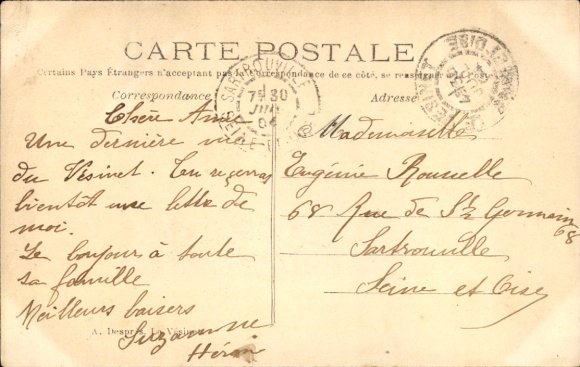 CARTE POSTALE
Certains Pays Étrangers n'acceptant pas la Correspondance de ce côté, se renseigner à la Poste
Correspondance
Adresse
SARTROUVILLE
7 30
JUIL
04
Chère Amie
Une dernière vue
du Vésinet. Tu recevras
bientôt une lettre de
moi.
Le bonjour à toute
sa famille
Meilleurs baisers
Suzanne
A. Després, Le Vésinet
Mademoiselle
Eugénie Rousselle
68 Rue de St Germain
68
Sartrouville
Seine et Oise